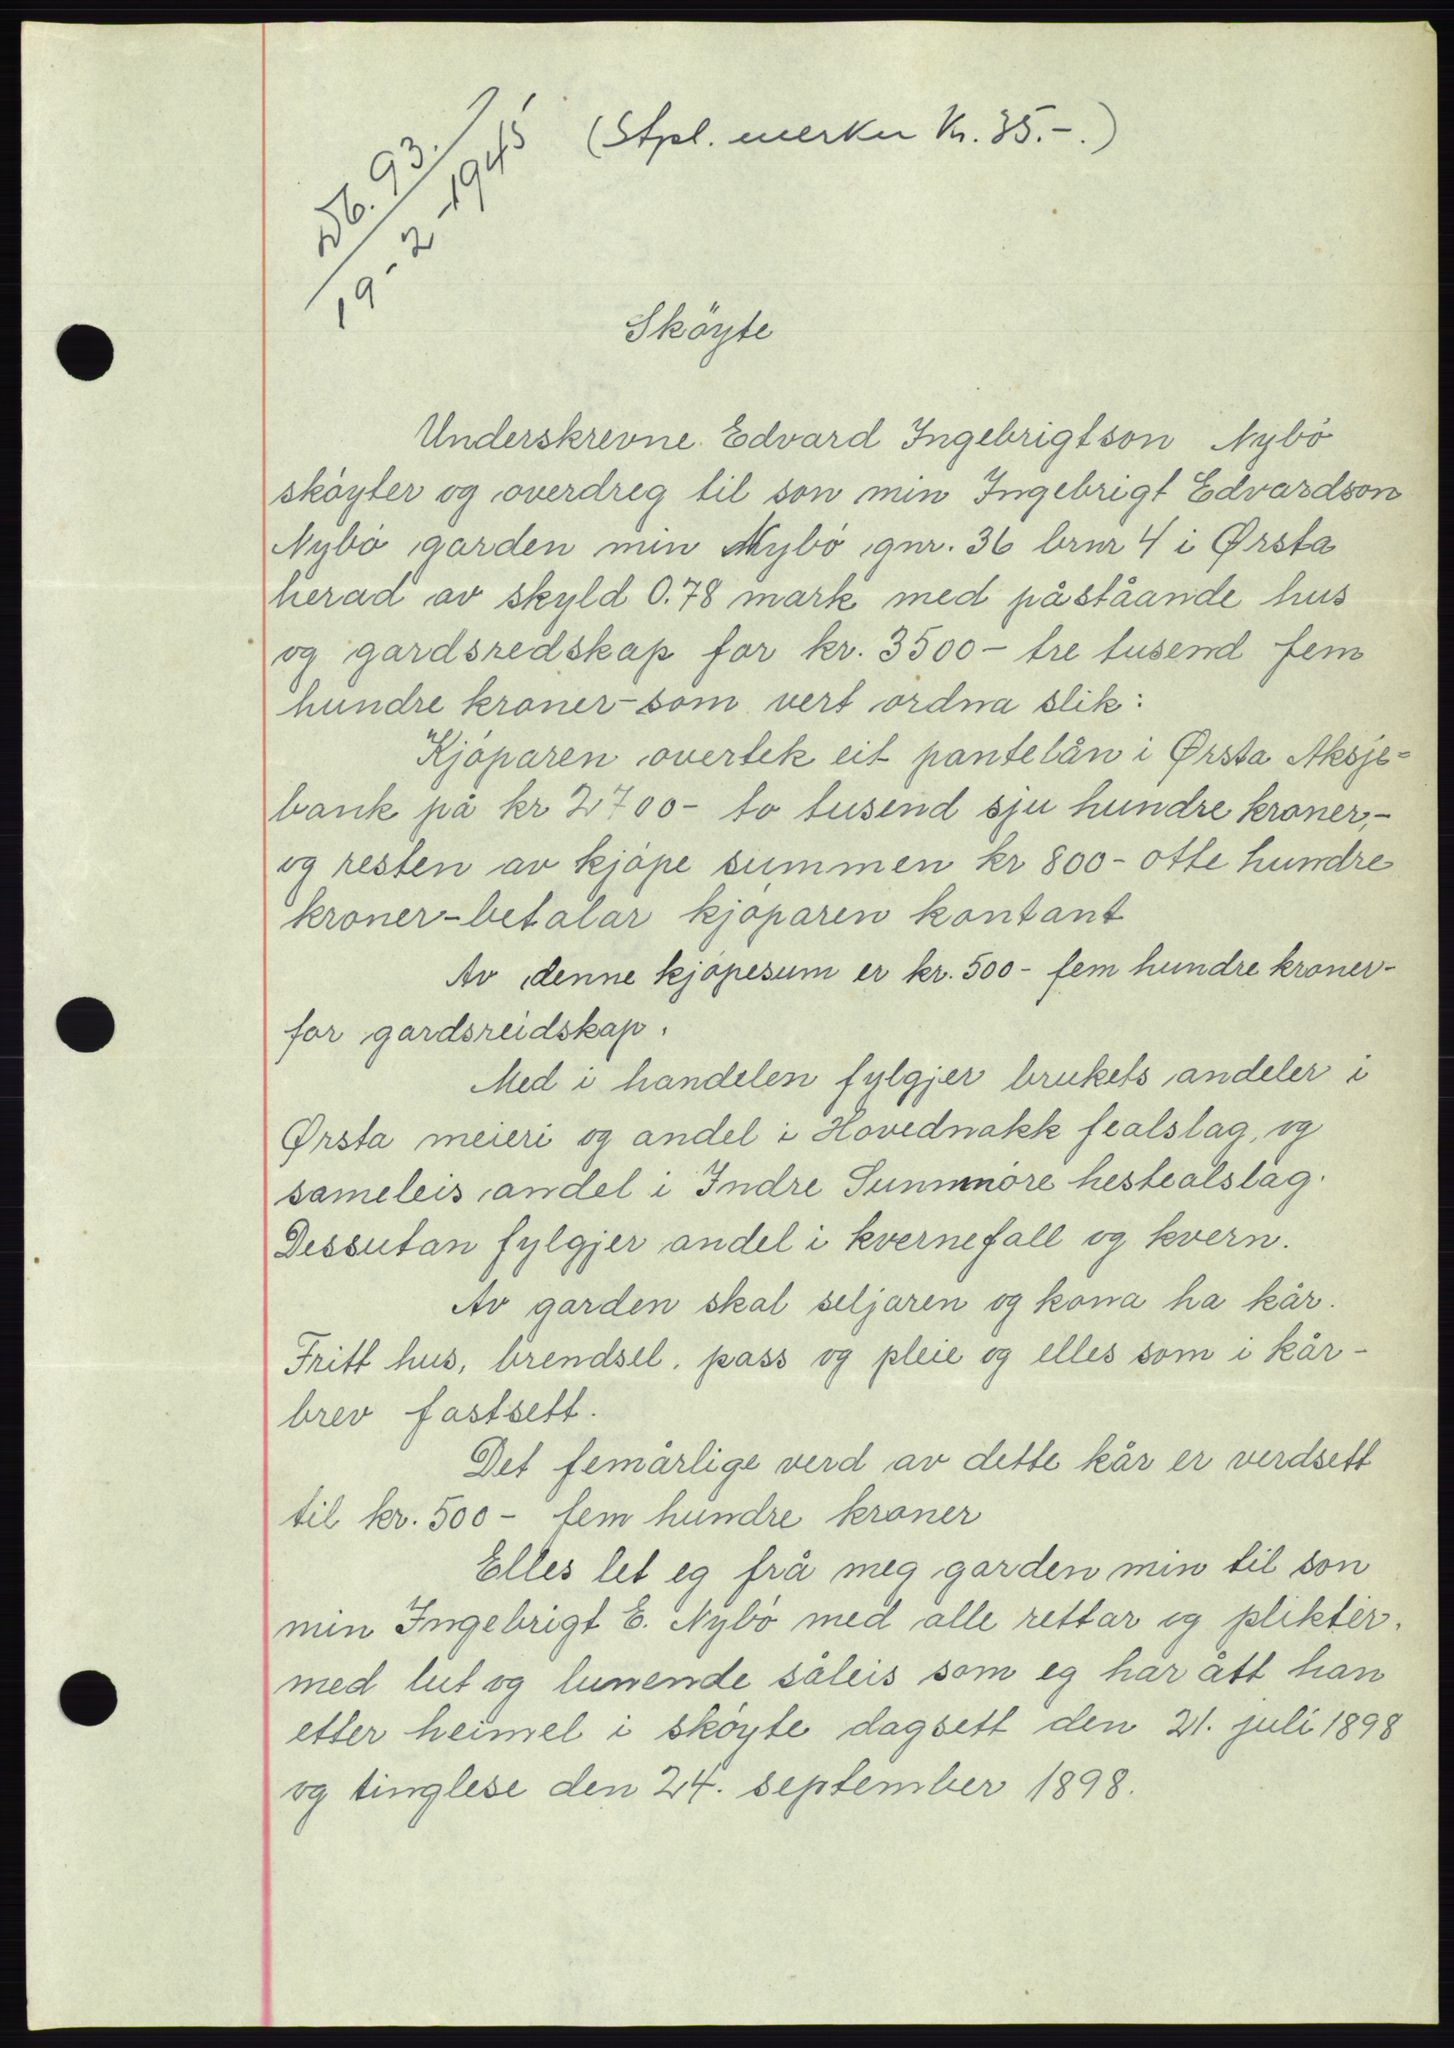 Db. 93.
19-2-1945
(Stpl. merker Kr. 35.-.)
Sköyte
Underskrevne Edvard Ingebrigtson Nybö
sköyter og overdreg til son min Ingebrigt Edvardson
Nybö garden min Nybö gnr. 36 brnr 4 i Ørsta
herad av skyld 0.78 mark med påståande hus
og gardsredskap for kr. 3500 - tre tusend fem
hundre kroner - som vert ordna slik:
Kjöparen overtek eit pantelån i Ørsta Aksje=
bank på kr 2700 - to tusend sju hundre kroner,-
og resten av kjöpe summen kr 800 - otte hundre
kroner - betalar kjöparen kontant
Av denne kjöpesum er kr. 500 - fem hundre kroner -
for gardsreidskap.
Med i handelen fylgjer brukets andeler i
Ørsta meieri og andel i Hovednakk fealslag, og
sameleis andel i Indre Sunnmöre hestealslag.
Dessutan fylgjer andel i kvernefall og kvern.
Av garden skal seljaren og kona ha kår.
Fritt hus, brendsel, pass og pleie og elles som i kår-
brev fastsett.
Det femårlige verd av dette kår er verdsett
til kr. 500 - fem hundre kroner
Elles let eg frå meg garden min til son
min Ingebrigt E. Nybö med alle rettar og plikter.
med lut og lunende såleis som eg har ått han
etter heimel i sköyte dagsett den 21. juli 1898
og tinglese den 24. september 1898.